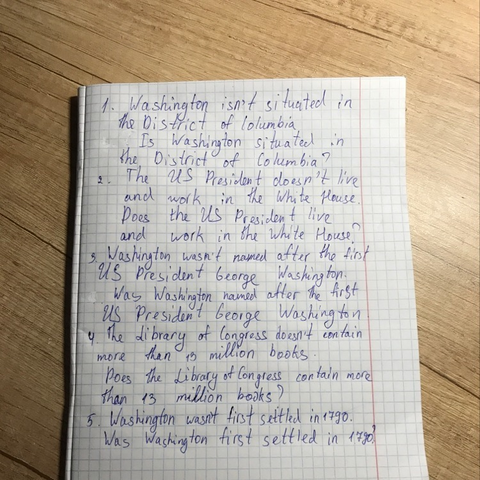 1. Washington isn't situated in
the District of Columbia
Is Washington situated in
the District of Columbia?
2. The US President doesn't live
and work in the White House.
Does the US President live
and work in the White House?
3. Washington wasn't named after the first
US President George Washington.
Was Washington named after the first
US President George Washington
4 The Library of Congress doesn't contain
more than 13 million books.
Does the Library of Congress contain more
than 13 million books?
5. Washington wasn't first settled in 1790.
Was Washington first settled in 1790?